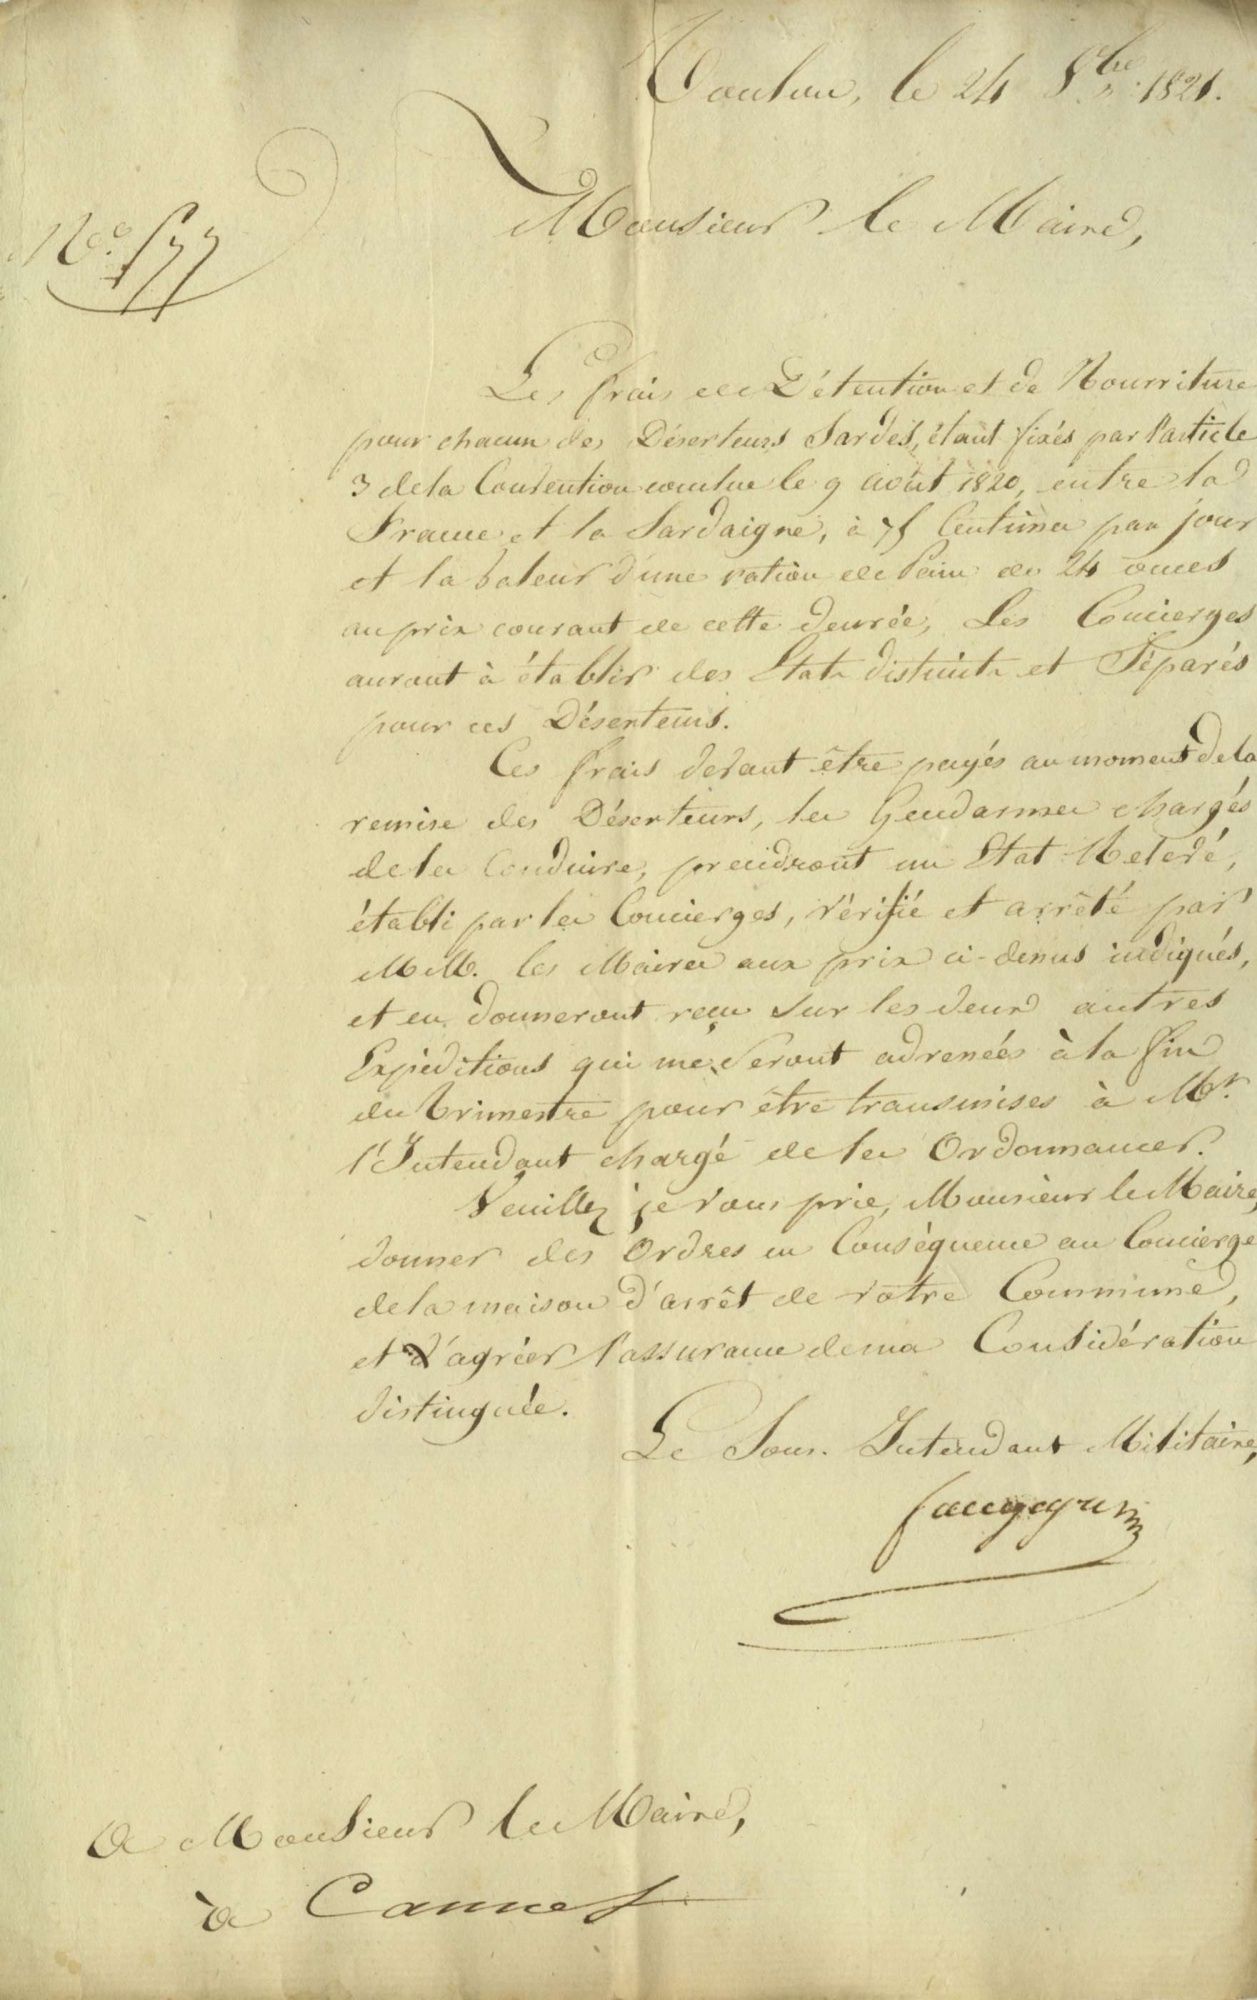 Toulon, le 24 8.bre 1821.
N.o 577
Monsieur le Maire,
Les frais de Détention et de Nourriture
pour chacun des Déserteurs Sardes, étant fixés par l'article
3 de la Convention conclue le 9 août 1820, entre la
France et la Sardaigne, à 75 Centimes par jour
et la valeur d'une ration de Pain de 24 onces
au prix courant de cette denrée, Les Concierges
auront à établir des Etats distincts et Séparés
pour ces Déserteurs.
Ces frais devant être payés au moment de la
remise des Déserteurs, les Gendarmes chargés
de les Conduire, prendront un Etat Relevé,
établi par les Concierges, vérifié et arrêté par
MM. les Maires aux prix ci-dessus indiqués,
et en donneront reçu sur les deux autres
Expéditions qui me seront adressées à la fin
du trimestre pour être transmises à Mr.
l'Intendant chargé de les Ordonnancer.
Veuillez je vous prie, Monsieur le Maire,
donner des Ordres en Conséquence au Concierge
de la maison d'arrêt de votre Commune,
et d'agréer l'assurance de ma Considération
distinguée.
Le Sous-Intendant Militaire,
A Monsieur le Maire,
à Cannes